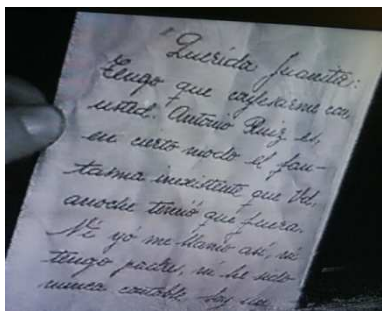 "Querida Juanita:
Tengo que confesarme con
usted. Antonio Ruiz es,
en cierto modo el fan-
tasma inexistente que Vd.
anoche temió que fuera.
Ni yo me llamo así, ni
tengo padres, ni he sido
nunca contable. Soy un